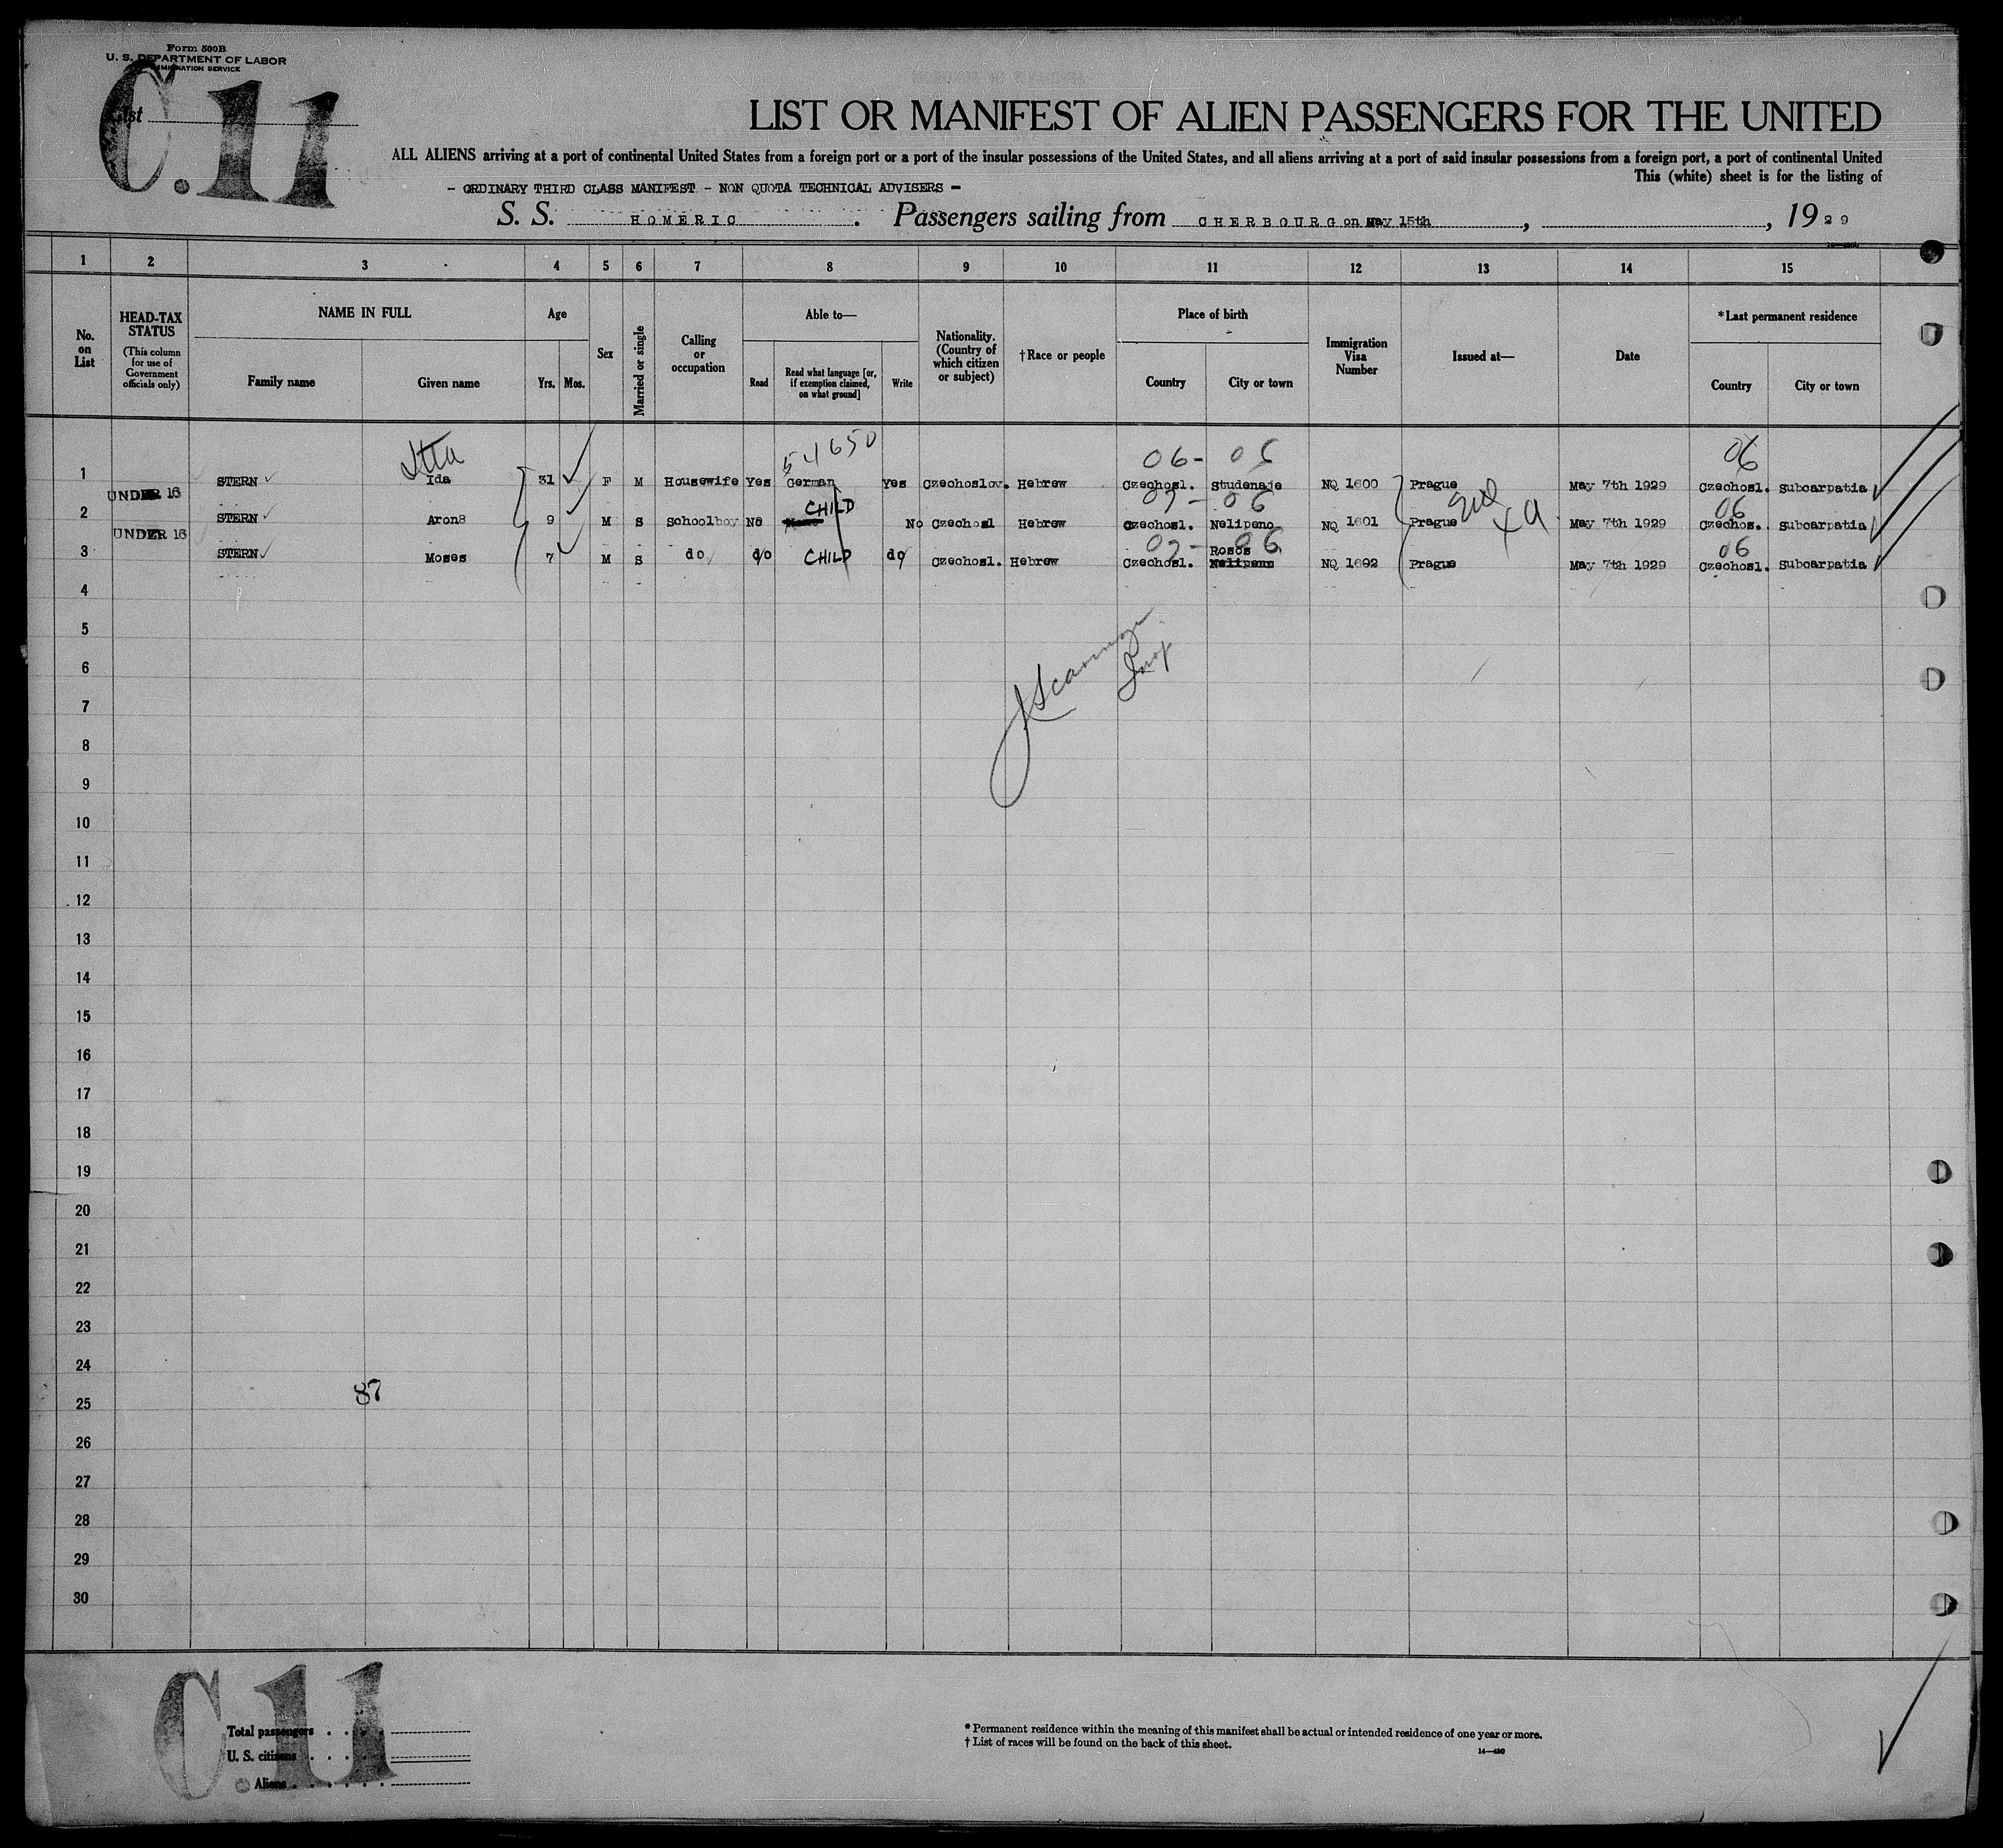 Form 500B
U. S. DEPARTMENT OF LABOR
IMMIGRATION SERVICE
List
C.11
LIST OR MANIFEST OF ALIEN PASSENGERS FOR THE UNITED
ALL ALIENS arriving at a port of continental United States from a foreign port or a port of the insular possessions of the United States, and all aliens arriving at a port of said insular possessions from a foreign port, a port of continental United
This (white) sheet is for the listing of
- ORDINARY THIRD CLASS MANIFEST - NON QUOTA TECHNICAL ADVISERS -
S. S. HOMERIC. Passengers sailing from CHERBOURG on May 15th, , 1929
1 2 3 4 5 6 7 8 9 10 11 12 13 14 15
No. on List
HEAD-TAX STATUS
(This column for use of Government officials only)
NAME IN FULL
Family name Given name
Age
Yrs. Mos.
Sex
Married or single
Calling or occupation
Able to—
Read
Read what language [or, if exemption claimed, on what ground]
Write
Nationality. (Country of which citizen or subject)
†Race or people
Place of birth
Country City or town
Immigration Visa Number
Issued at—
Date
*Last permanent residence
Country City or town
Itta 54650 06- 06 06
1 STERN Ida 31 F M Housewife Yes German Yes Czechoslov. Hebrew Czechosl. Studenaje NQ 1600 Prague May 7th 1929 Czechosl. Subcarpatia
UNDER 16 CHILD 07- 06 06
2 STERN Aron 8 9 M S Schoolboy No No Czechosl Hebrew Czechosl. Nelipeno NQ 1601 Prague May 7th 1929 Czechos. Subcarpatia
UNDER 16 07- 06 06
Rosos
3 STERN Moses 7 M S do do CHILD do Czechosl. Hebrew Czechosl. Nelipeno NQ 1602 Prague May 7th 1929 Czechosl. Subcarpatia
4
5
6
7
8
9
10
11
12
13
14
15
16
17
18
19
20
21
22
23
24
87
25
26
27
28
29
30
C 11
Total passengers
U. S. citizens
Aliens
* Permanent residence within the meaning of this manifest shall be actual or intended residence of one year or more.
† List of races will be found on the back of this sheet.
14—430